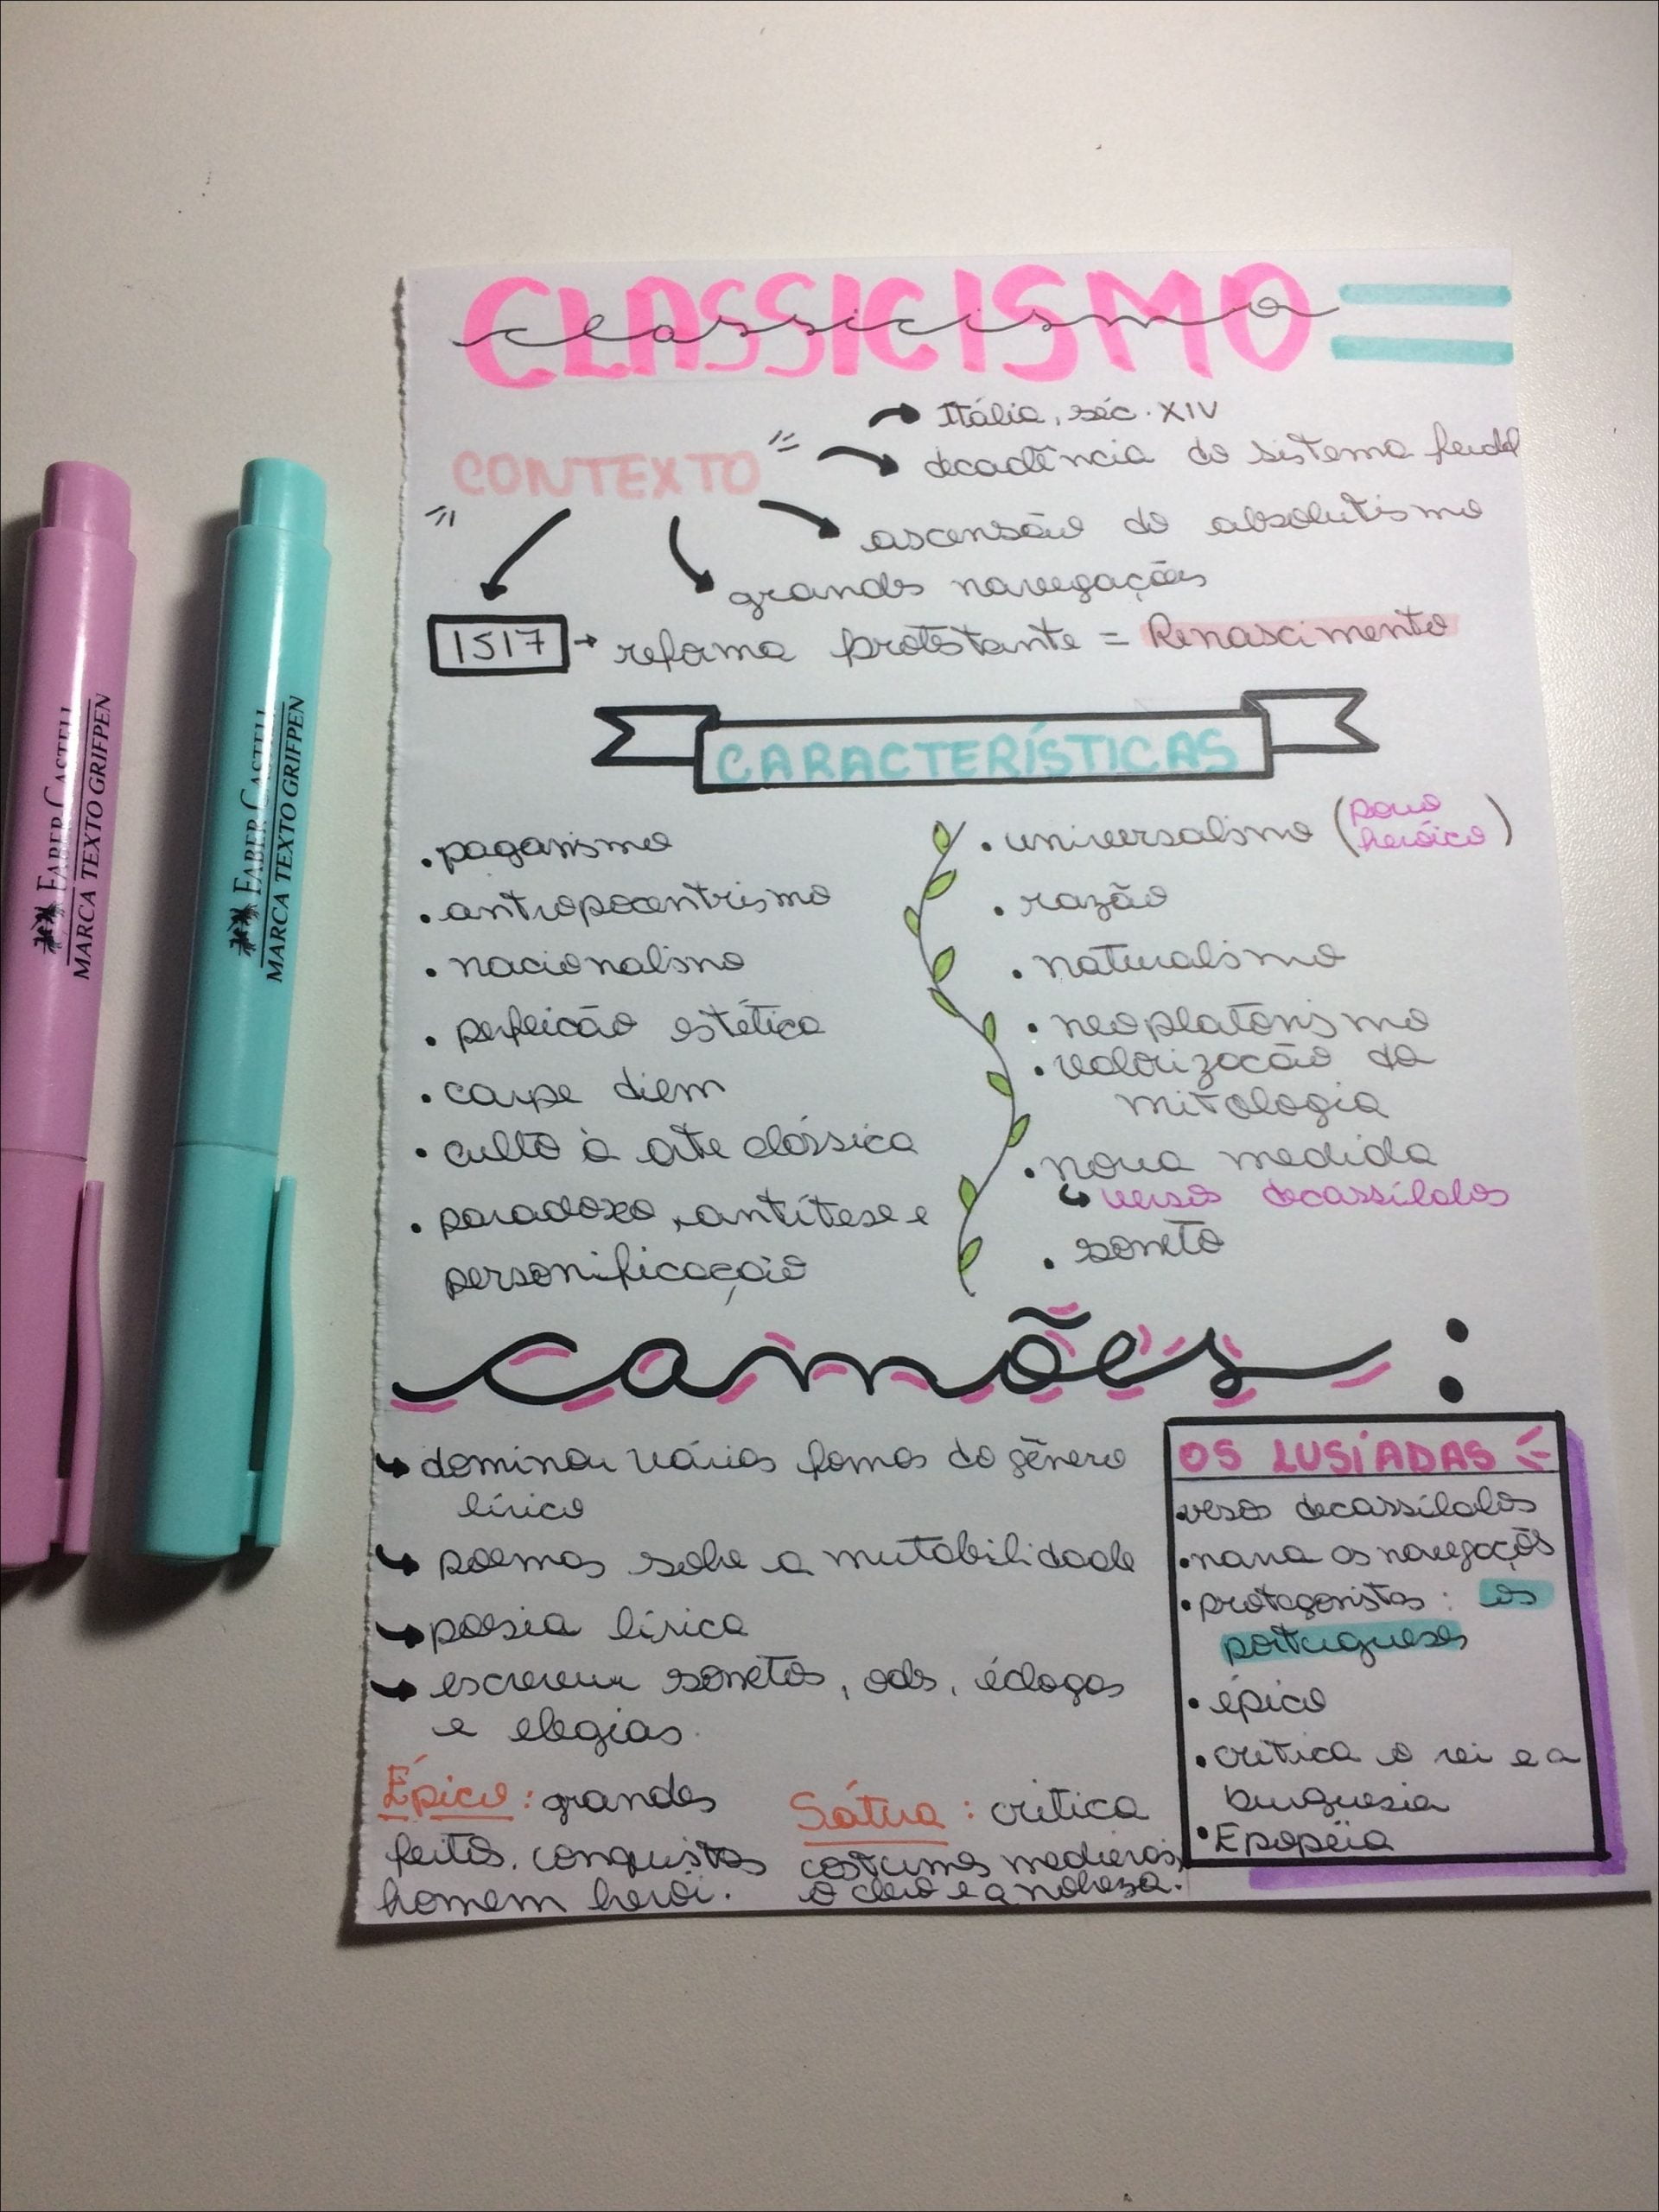 CLASSICISMO
classicismo
Itália, séc. XIV
CONTEXTO
decadência do sistema feudal
ascensão do absolutismo
grandes navegações
1517 → reforma protestante = Renascimento
CARACTERÍSTICAS
• paganismo
• antropocentrismo
• nacionalismo
• perfeicão estética
• carpe diem
• culto à arte clássica
• paradoxo, antítese e
personificaçaõ
• universalismo (povo
heróico)
• razão
• naturalismo
• neoplatonismo
• valorizacão da
mitologia
• nova medida
↳ versos decassílabos
• soneto
camões :
↳ dominou várias formas do gênero
lírico
↳ poemas sobre a mutabilidade
↳ poesia lírica
↳ escreveu sonetos, odes, éclogas
e elegias.
Épico: grandes
feitos, conquistas
homem herói.
Sátira: critica
costumes medievais,
o clero e a nobreza.
OS LUSÍADAS
• versos decassílabos
• narra as navegações
• protagonistas: os
portugueses
• épico
• critica o rei e a
burguesia
• Epopéia
FABER CASTELL
MARCA TEXTO GRIFPEN
FABER CASTELL
MARCA TEXTO GRIFPEN